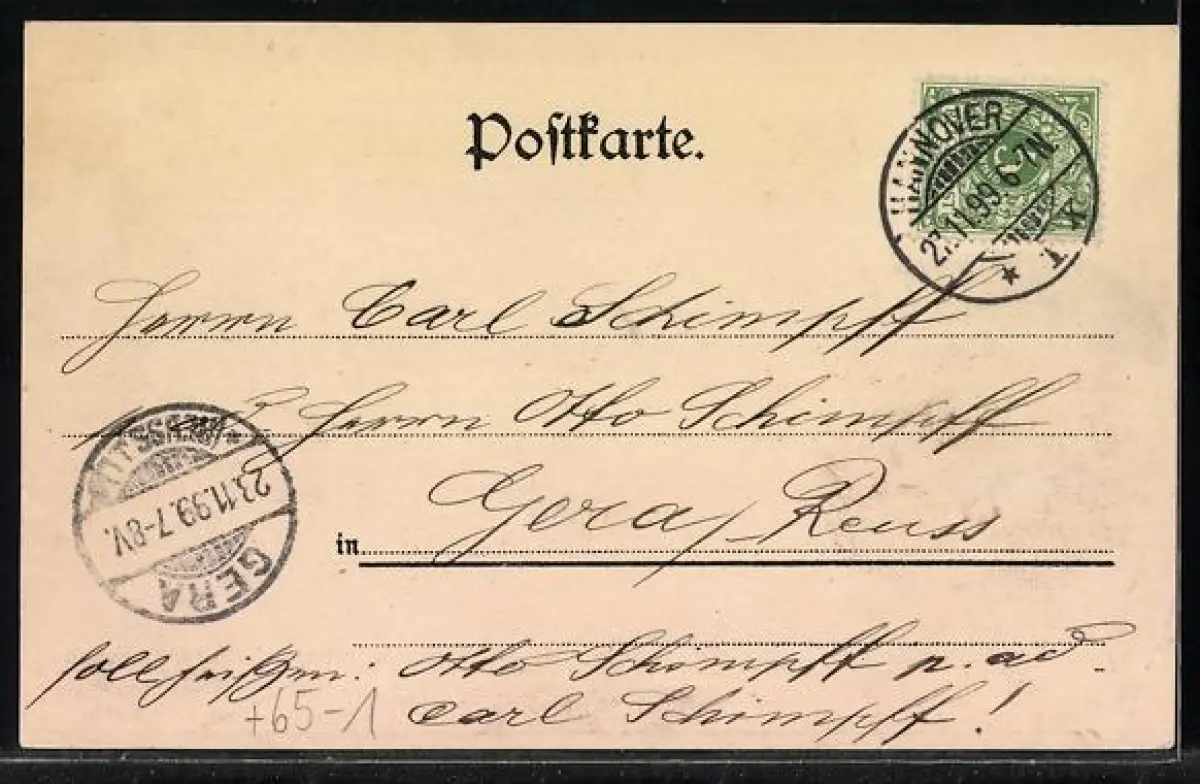 Postkarte.
HANNOVER
23.11.99. 6-7N.
* 1 K
Herrn Carl Schimpff
Herrn Otto Schimpff
in Gera, Reuss
23.11.99. 7-8V.
GERA
soll heißen: Otto Schimpff p. ad.
Carl Schimpff!
+65-1